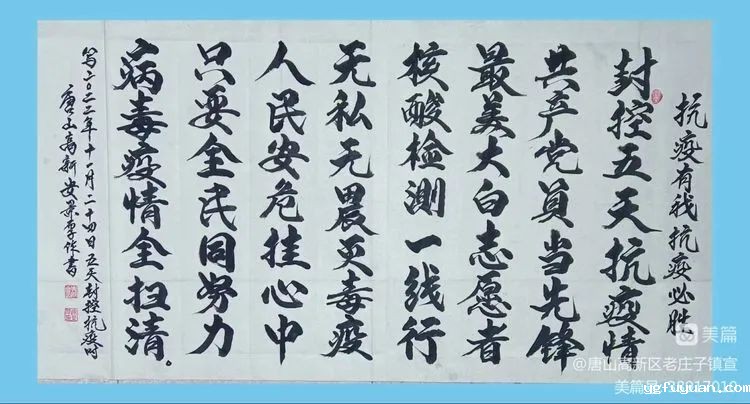 抗疫有我抗疫必胜
封控五天抗疫情
共产党员当先锋
最美大白志愿者
核酸检测一线行
无私无畏灭毒疫
人民安危挂心中
只要全民同努力
病毒疫情全扫清。
写二〇二二年十一月二十四日五天封控抗疫时
唐山高新安
书
美篇
@唐山高新区老庄子镇宣
美篇号
ggfuyuan.com